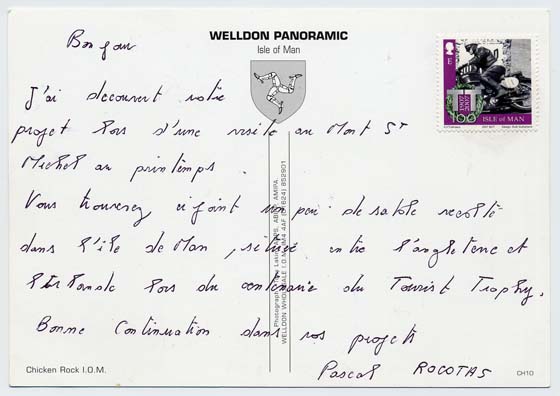 WELLDON PANORAMIC
Isle of Man
Bonjour
J'ai decouvert votre
projet lors d'une visite au Mont St
Michel au printemps.
Vous trouverez ci joint un peu de sable recolté
dans l'ile de Man, située entre l'angleterre et
l'Irlande lors du centenaire du Tourist Trophy.
Bonne Continuation dans vos projets
Pascal ROCOTAS
Chicken Rock I.O.M.
CH10
ISLE of MAN
100
E